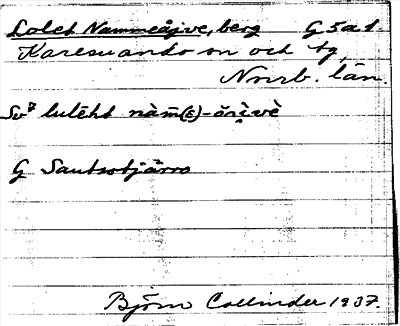 Lolet Nammeåjve, berg G 5 a 1.
Karesuando sn och tg,
Norrb. län.
Sv⁷ lulēht nàm̄(ε)-ŏri̯vè
G Sautsotjärro
Björn Collinder 1937.